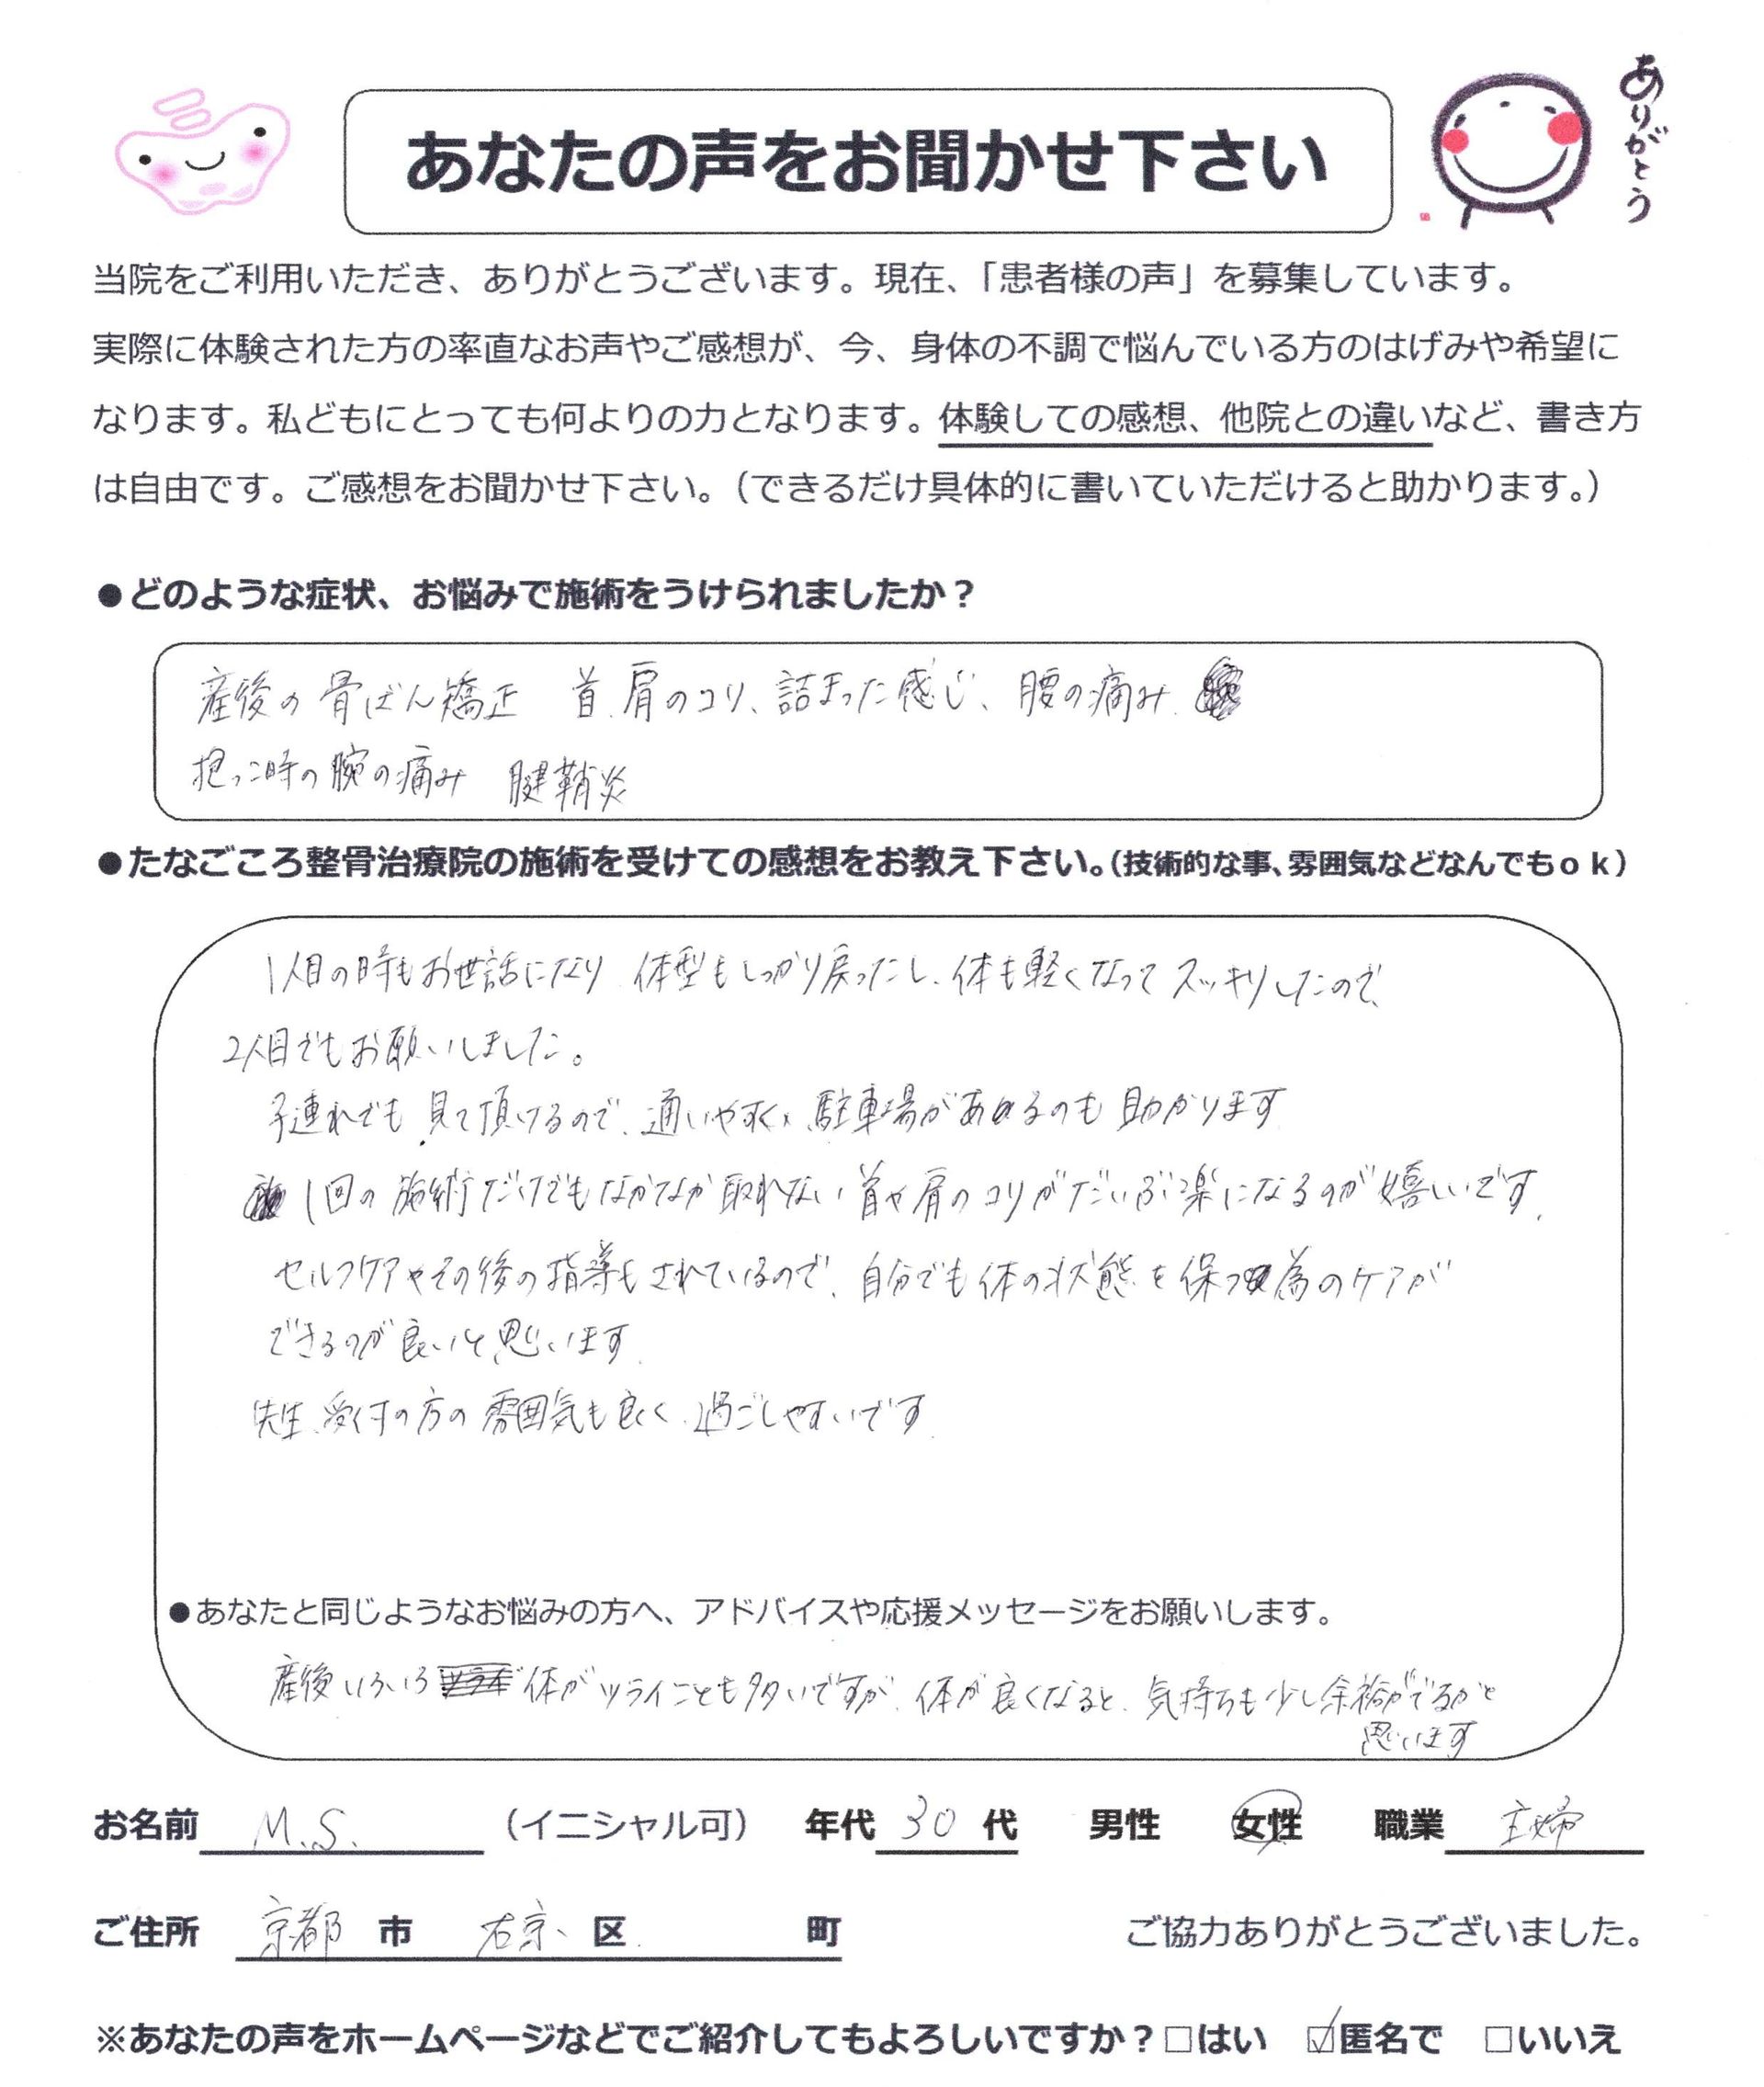 あなたの声をお聞かせ下さい
ありがとう
当院をご利用いただき、ありがとうございます。現在、「患者様の声」を募集しています。
実際に体験された方の率直なお声やご感想が、今、身体の不調で悩んでいる方のはげみや希望に
なります。私どもにとっても何よりの力となります。体験しての感想、他院との違いなど、書き方
は自由です。ご感想をお聞かせ下さい。（できるだけ具体的に書いていただけると助かります。）
●どのような症状、お悩みで施術をうけられましたか？
産後の骨ばん矯正 首、肩のコリ、詰まった感じ、腰の痛み、
抱っこ時の腕の痛み 腱鞘炎
●たなごころ整骨治療院の施術を受けての感想をお教え下さい。（技術的な事、雰囲気などなんでもｏｋ）
1人目の時もお世話になり 体型もしっかり戻ったし、体も軽くなってスッキリしたので、
2人目でもお願いしました。
子連れでも見て頂けるので、通いやすく、駐車場があるのも助かります
1回の施術だけでもなかなか取れない首や肩のコリがだいぶ楽になるのが嬉しいです、
セルフケアやその後の指導もされているので、自分でも体の状態を保つ為のケアが
できるのが良いと思います、
先生、受付の方の雰囲気も良く、過ごしやすいです、
●あなたと同じようなお悩みの方へ、アドバイスや応援メッセージをお願いします。
産後いろいろ体がツライことも多いですが、体が良くなると、気持ちも少し余裕がでるかと
思います
お名前 M.S. （イニシャル可） 年代 30 代 男性 女性 職業 主婦
ご住所 京都 市 右京 区 町 ご協力ありがとうございました。
※あなたの声をホームページなどでご紹介してもよろしいですか？□はい ☑匿名で □いいえ